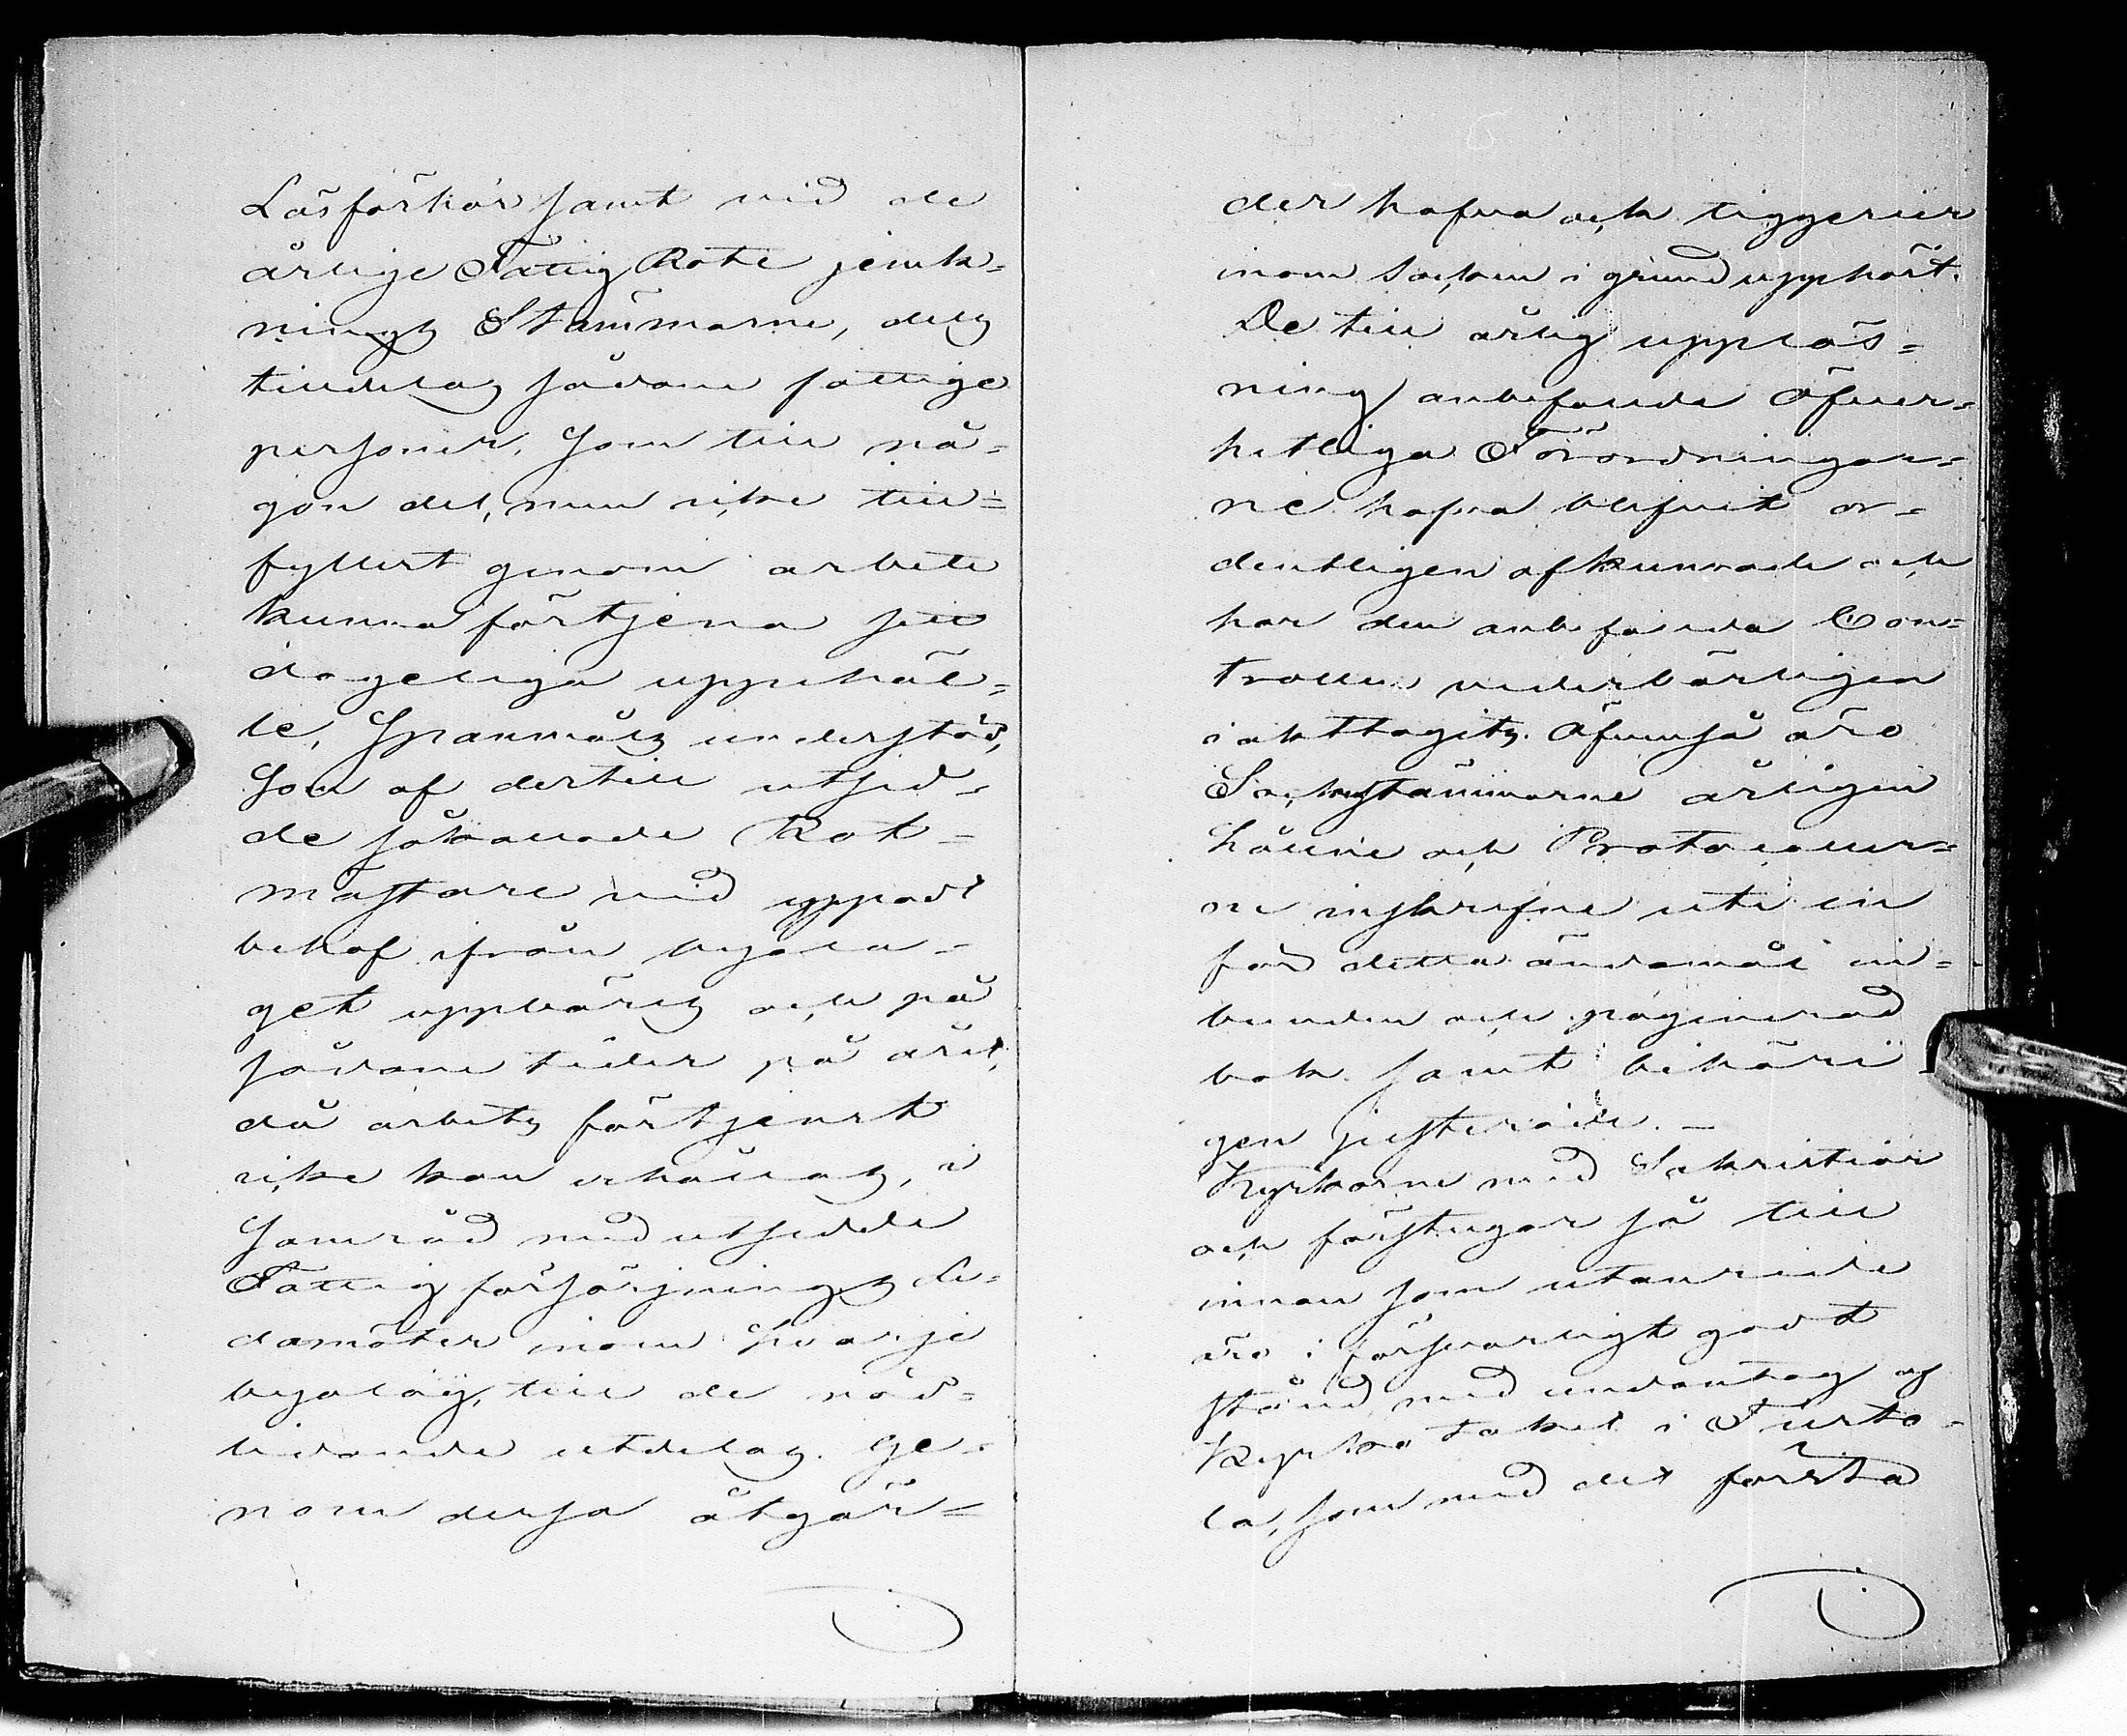 Läsförhör samt vid de
årlige Fattig Rote jemk-
nings Stämmorne, dels
tilldelas sådane fattige
personer, som till nå-
gon del, men icke till-
fyllest genom arbete
kunna förtjena sitt
dageliga uppehäl-
le, Spanmåls understöd,
som af dertill utsed-
de så kallade Rot-
mästare vid uppåt
behof ifrån byala-
get uppbäres och på
sådane tider på året,
då arbets förtjenst
icke kan erhållas, i
samråd med utsedde
Fattigförsörjnings Le-
damöter inom hvarje
byalag, till de nöd-
lidande utdelas. Ge-
nom dessa åtgär-
der hafva ock tiggerier
inom Socken i grund upphört.
De till årlig uppläs-
ning anbefalda Öfver-
hetliga Förordningar-
ne hafva blifvit or-
dentligen afkunnade och
har den anbefalda Con-
trollen vederbörligen
iakttagits. Äfvenså äro
Sockenstämmorne årligen
hållne och Protocoller-
ne inskrifne uti en
för detta ändamål in-
bunden och paginerad
bok samt behöri
gen justerade. -
Kyrkorne med Sakristior
och förstugor så till
innan som utanrede
äro i försvarligt godt
stånd, med undantag af
Kyrkotaket i Turto-
la, som med det första